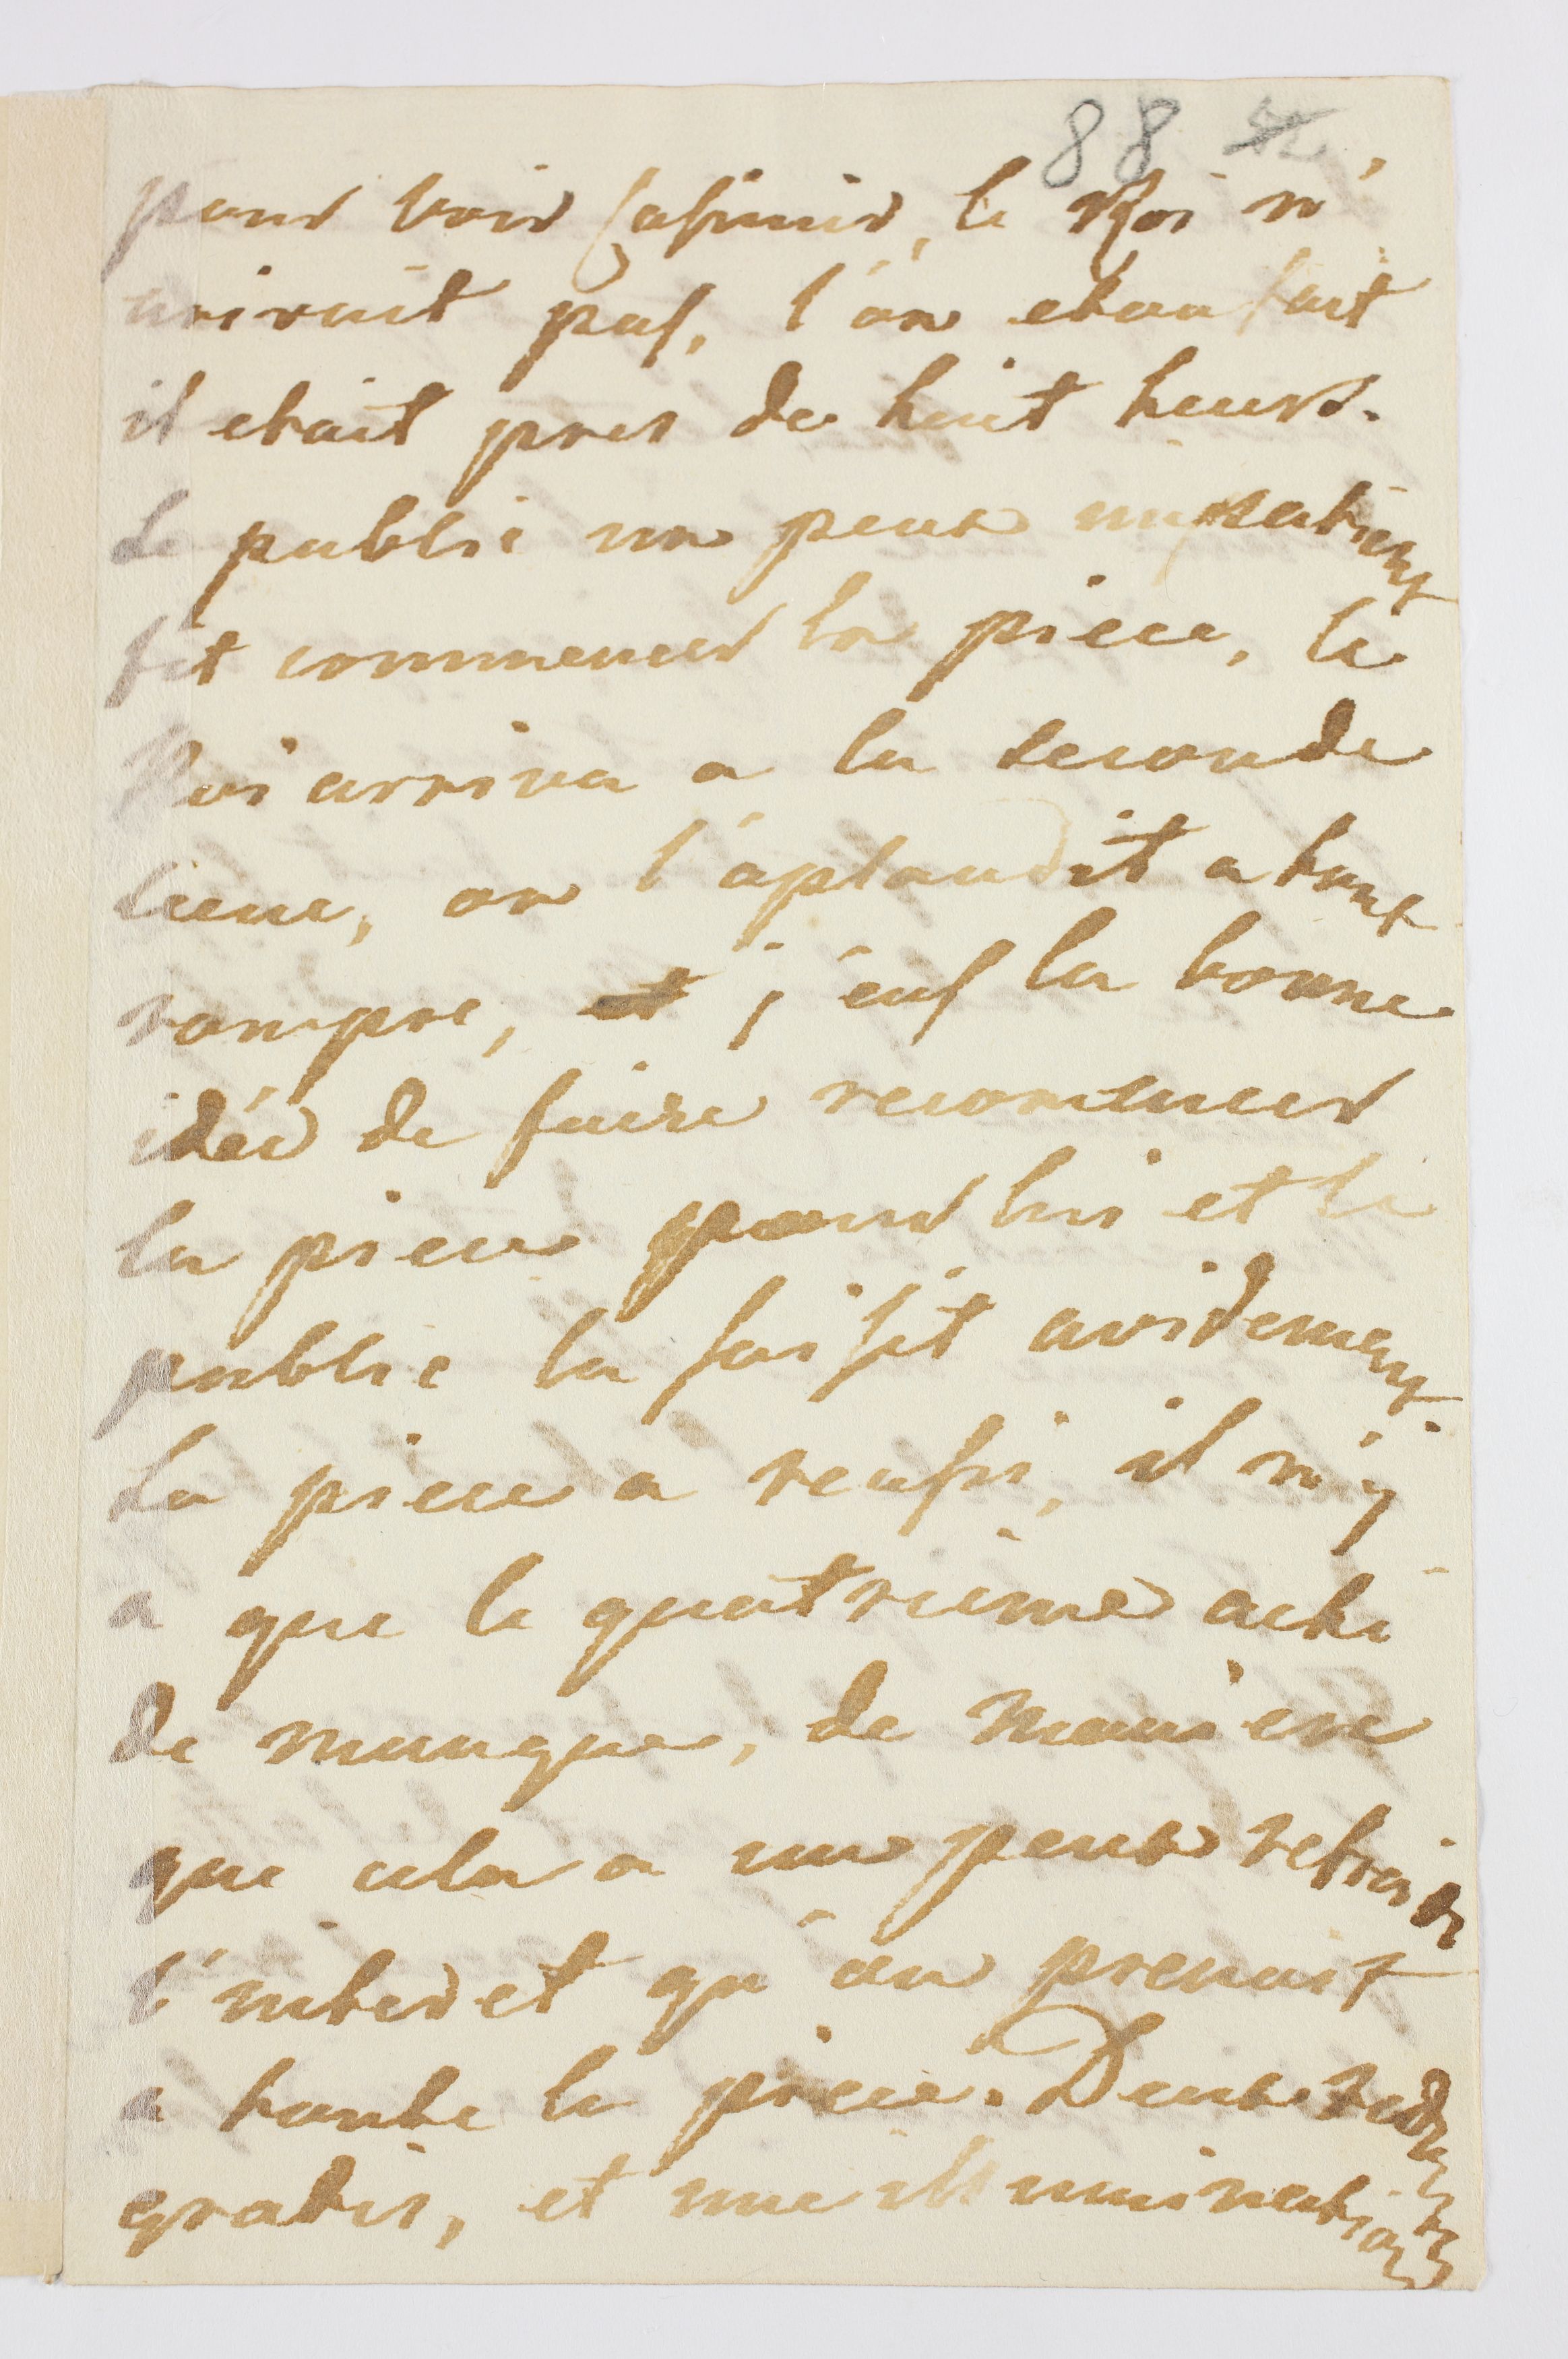 88
pour voir Casimir, le Roi n'
arrivait pas, l'on etoufait
il etait pres de huit heurs.
Le public un peux impatient
fit commencer la piece, le
Roi arriva a la seconde
Ciene, on l'aplaudit a tout
rompre, et j'eus la bonne
idée de faire recomencer
la piece pour lui et le
public la saissit avidement.
La piece a reussi, il n'y
a que le quatrieme acte
de manque, de maniere
que cela a un peux retroidi
l'interet qu'on prenait
a toute la piece. Deux redoutes
gratis, et une illumination